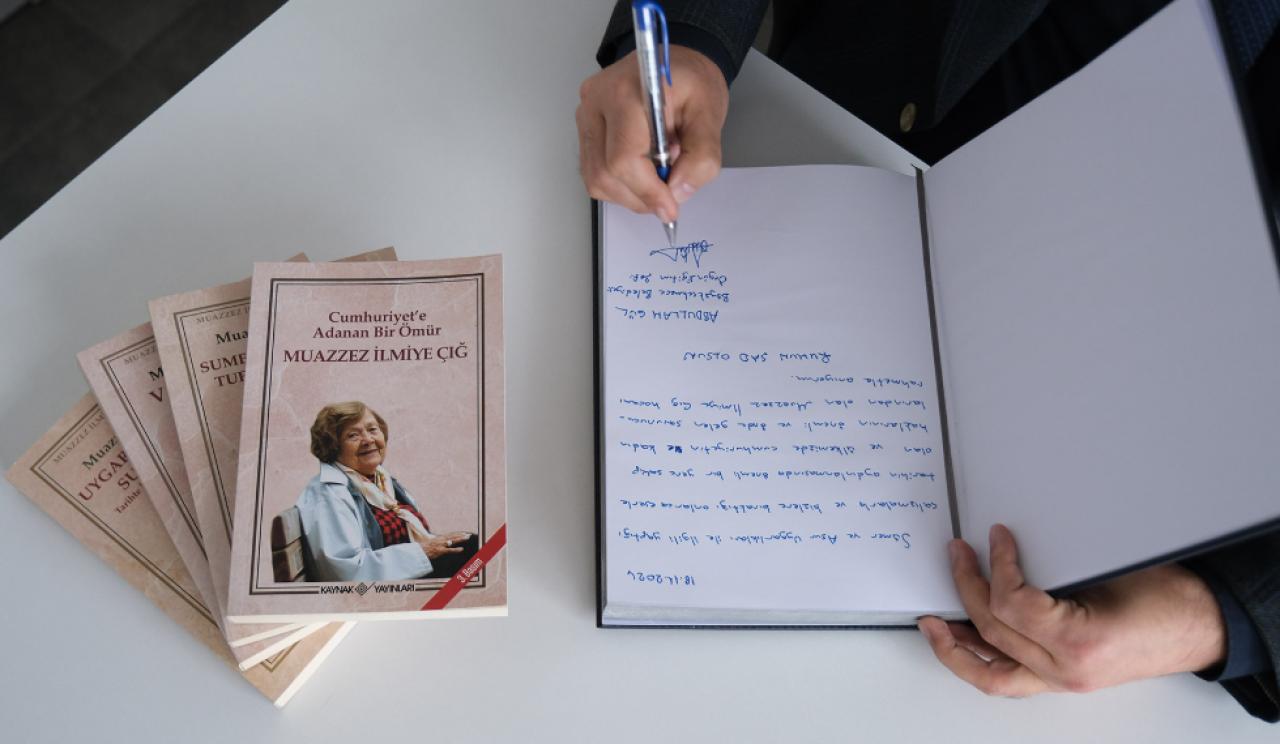 Cumhuriyet'e
Adanan Bir Ömür
MUAZZEZ İLMİYE ÇIĞ
KAYNAK YAYINLARI
3. Basım
MUAZZEZ İ
Mua
SUME
TUF
MUAZZ
M
V
MUAZZEZ İLM
Muaz
UYGAR
SU
Tarihte
18.11.2024
Sümer ve Asur Uygarlıkları ile ilgili yaptığı
çalışmalarla ve bizlere bıraktığı onlarca eserle
tarihin aydınlanmasında önemli bir yere sahip
olan ve ülkemizde cumhuriyetin ve kadın
haklarının önemli ve önde gelen savunucu-
larından olan Muazzez İlmiye Çığ hocamı
rahmetle anıyorum.
RUHUN ŞAD OLSUN
ABDULLAH GÜL
Büyükçekmece Belediyesi
Örgün Eğitim Şefi